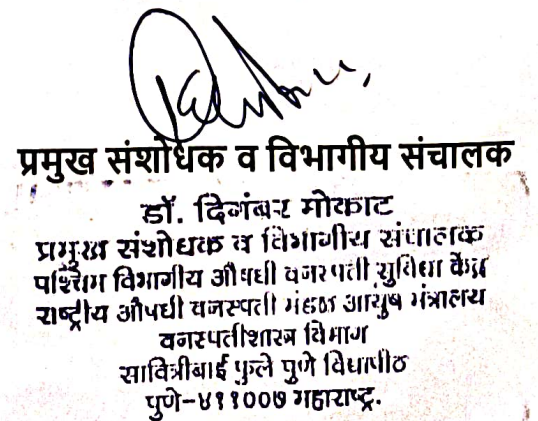 प्रमुख संशोधक व विभागीय संचालक
डॉ. दिगंबर मोकाट
प्रमुख संशोधक व विभागीय संचालक
पश्चिम विभागीय औषधी वनस्पती सुविधा केंद्र
राष्ट्रीय औषधी वनस्पती मंडळ आयुष मंत्रालय
वनस्पतीशास्त्र विभाग
सावित्रीबाई फुले पुणे विद्यापीठ
पुणे-४११००७ महाराष्ट्र.